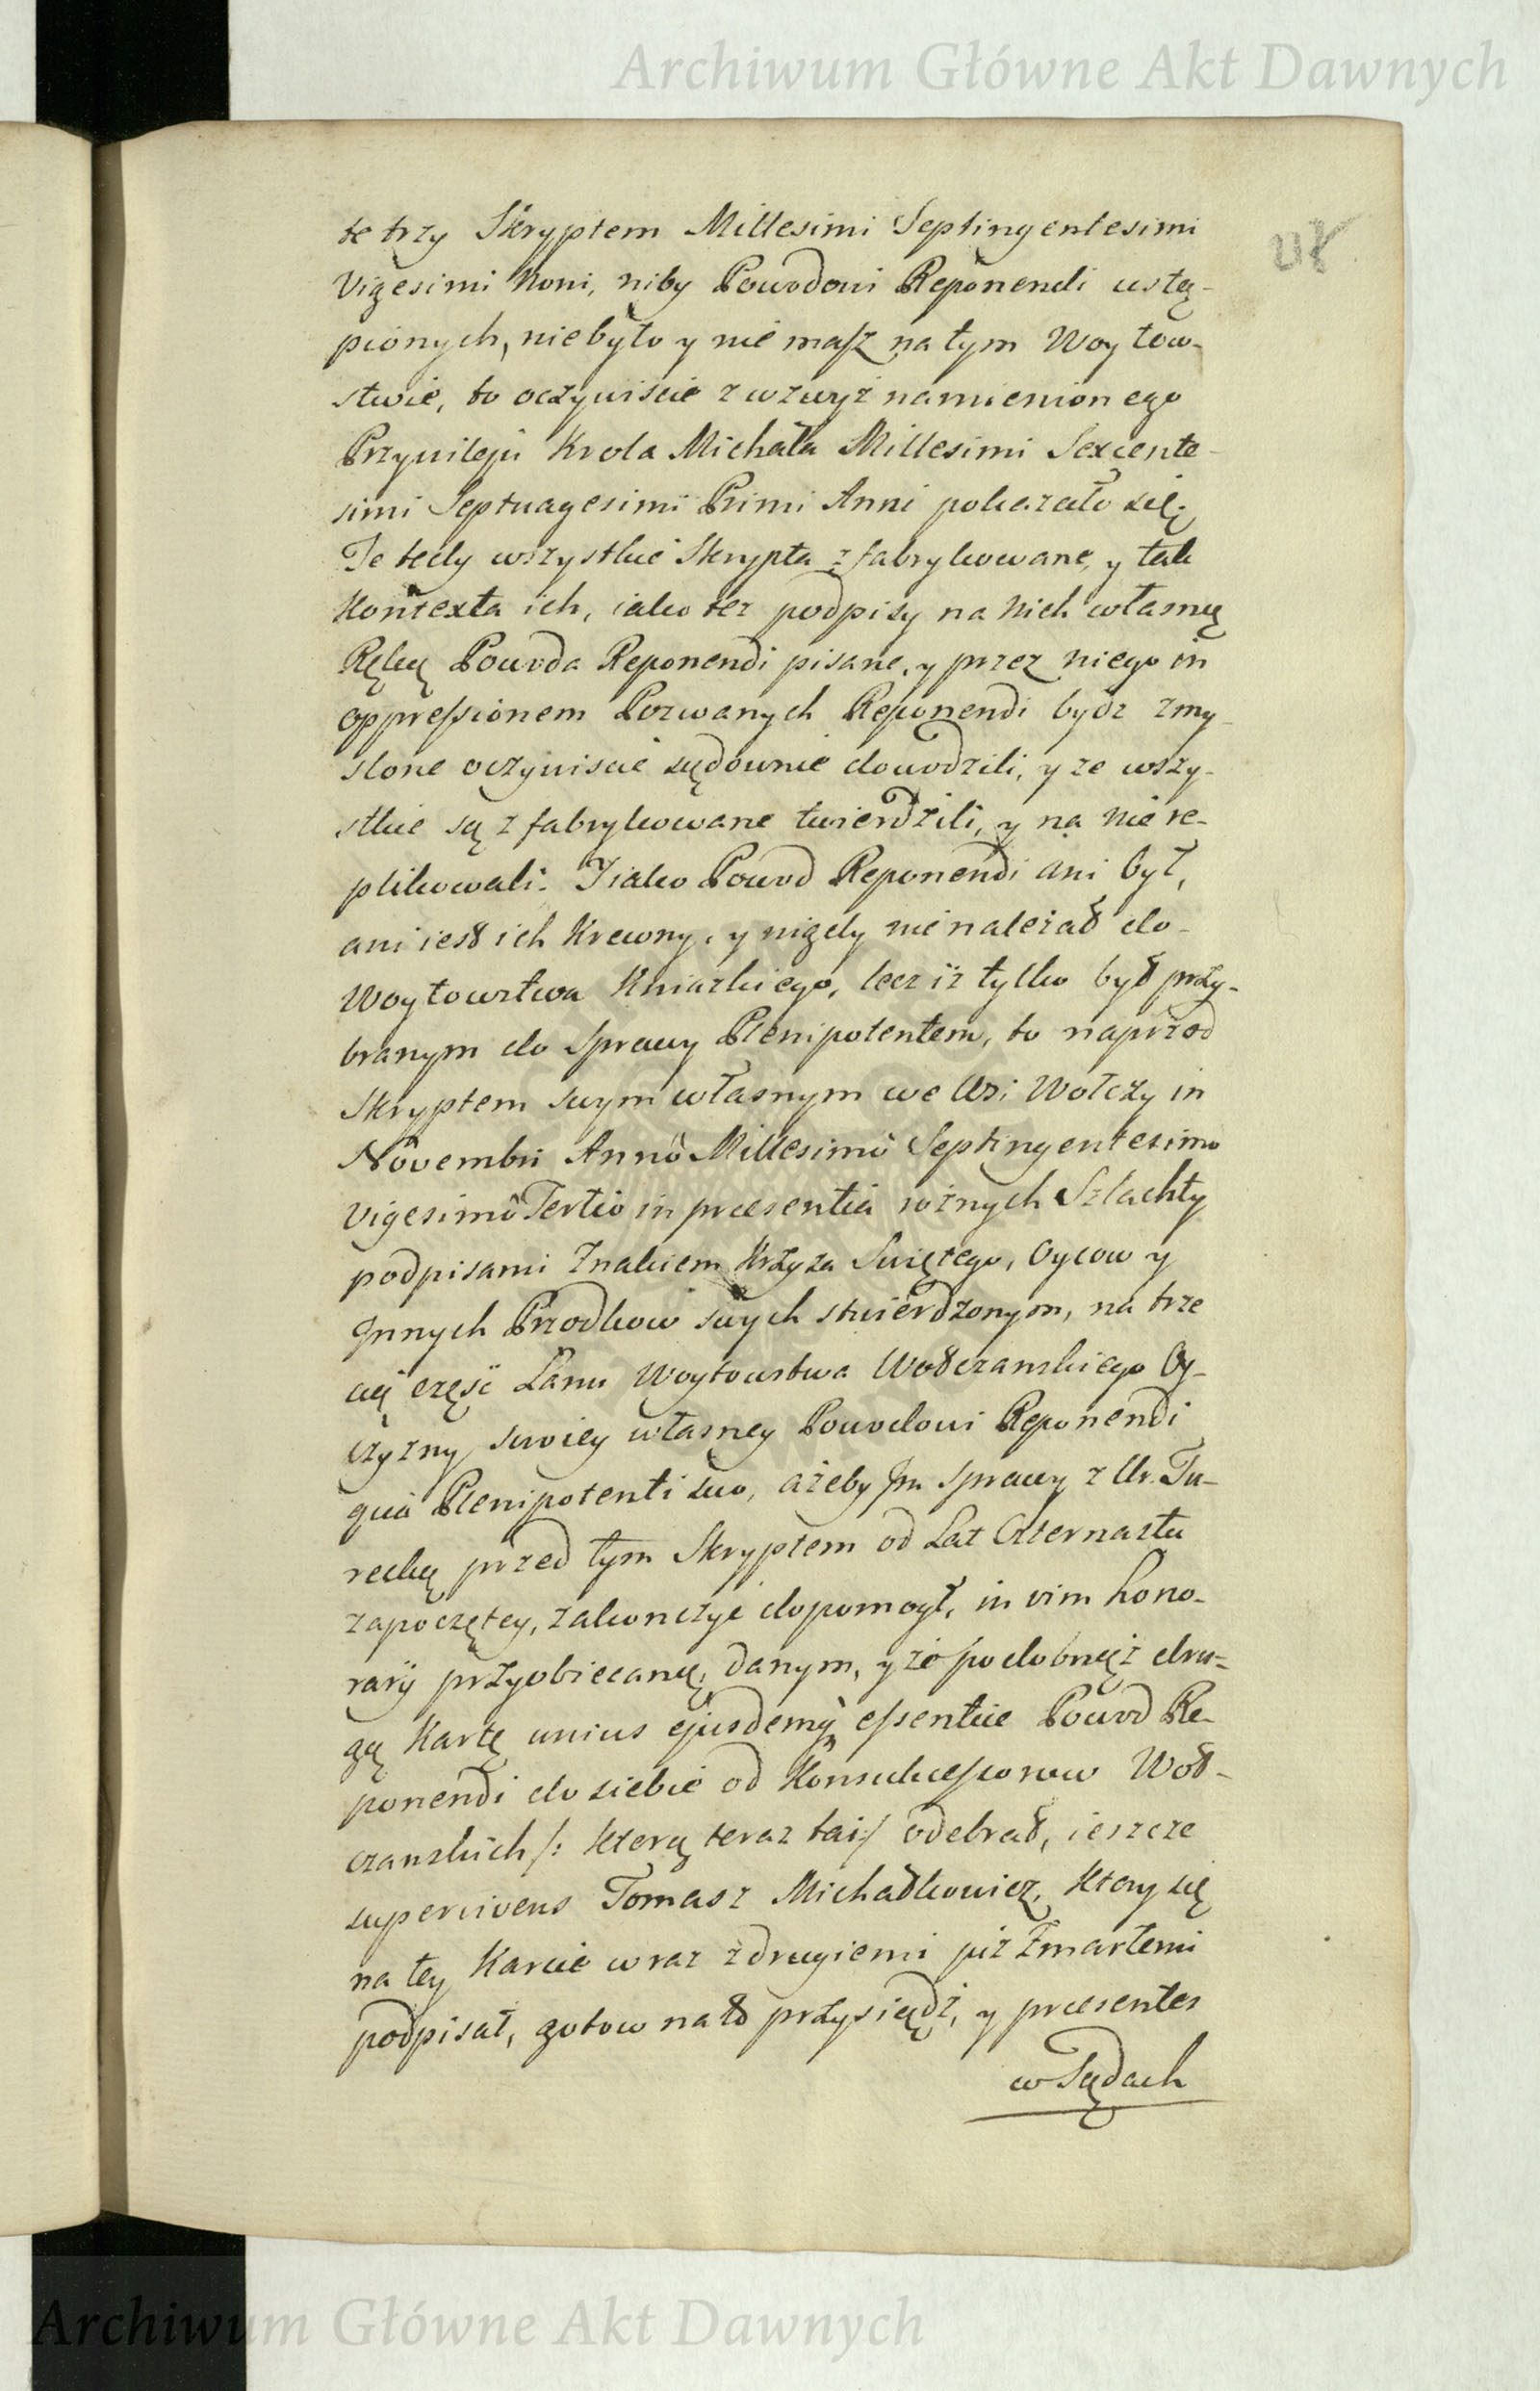 Archiwum Główne Akt Dawnych
te trzy Skryptem Millesimi Septingentesimi
Vigesimi Noni, niby Powodowi Reponendi ustą-
pionych, niebyło y nie masz na tym Woytow-
stwie, to oczywiście z wzwyż namienionego
Przywileju Krola Michała Millesimi Sexcente-
simi Septuagesimi Primi Anni pokazało się.
Te tedy wszystkie Skrypta zfabrykowane, y tak
Kontexta ich, iako też podpisy na nich własną
Ręką Powoda Reponendi pisane, y przez niego in
oppressionem Pozwanych Reponendi bydz zmy-
slone oczywiscie sądownie dowodzili, y ze wszy-
stkie są zfabrykowane twierdzili, y na nie re-
plikowali. J iako Powod Reponendi ani był,
ani iest ich Krewny, y nigdy nie należał do
Woytowstwa Kniazkiego, lecz iż tylko był przy-
branym do Sprawy Plenipotentem, to naprzod
Skryptem swym własnym we Wsi Wołczy in
Novembri Annô Millesimô Septingentesimo
Vigesimô Tertio in præsentia rożnych Szlachty
podpisami Znakiem Krzyża Swiętego, Oycow y
Jnnych Przodkow swych stwierdzonym, na trze
cią część Łanu Woytowstwa Wołczanskiego Oy-
czyzny swoiey własney Powodowi Reponendi
quà Plenipotenti suo, ażeby Jm Sprawy z Ur. Tu-
recką przed tym Skryptem od Lat Czternastu
zapoczętey, zakonczyć dopomogł, in vim hono-
rarij przyobiecaną, danym, y że podobnęż dru-
gą Kartę unius ejusdemq̃ essentiæ Powod Re-
ponendi do siebie od Konsukcessorow Woł-
czanskich /: którą teraz tai :/ odebrał, ieszcze
supervivens Tomasz Michałkowicz, ktory się
na tey Karcie wraz z drugiemi już Zmarłemi
podpisał, gotow na to przysiądz, y præsentes
w Sądach
Archiwum Główne Akt Dawnych